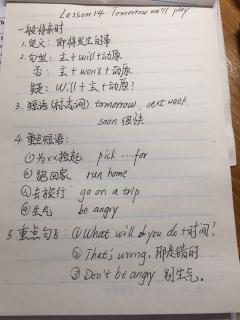 Lesson 14 Tomorrow we'll play
一般将来时
1.定义: 即将发生的事
2.句型: 主+will+动原
否: 主+won't+动原
疑: Will+主+动原?
3.短语(标志词) tomorrow、next week
soon 很快
4.重点短语:
①为xx捡起 pick…for
②跑回家 run home
④去旅行 go on a trip
④生气 be angry
5 重点句子: ① What will do you do +时间?
② That's wrong, 那是错的
③ Don't be angry 别生气。